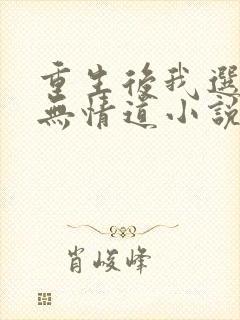 重生後我選
無情道小說
肖峻峰